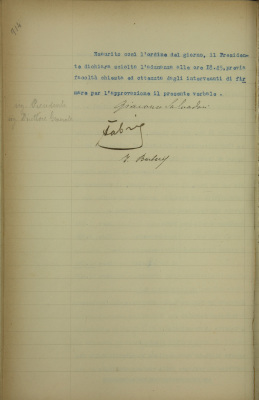 914
Esaurito così l'ordine del giorno, il Presiden-
te dichiara sciolta l'adunanza alle ore 18.45, previa
facoltà chiesta ed ottenuta dagli intervenuti di fir
mare per l'approvazione il presente verbale .
Presidente
Fabri